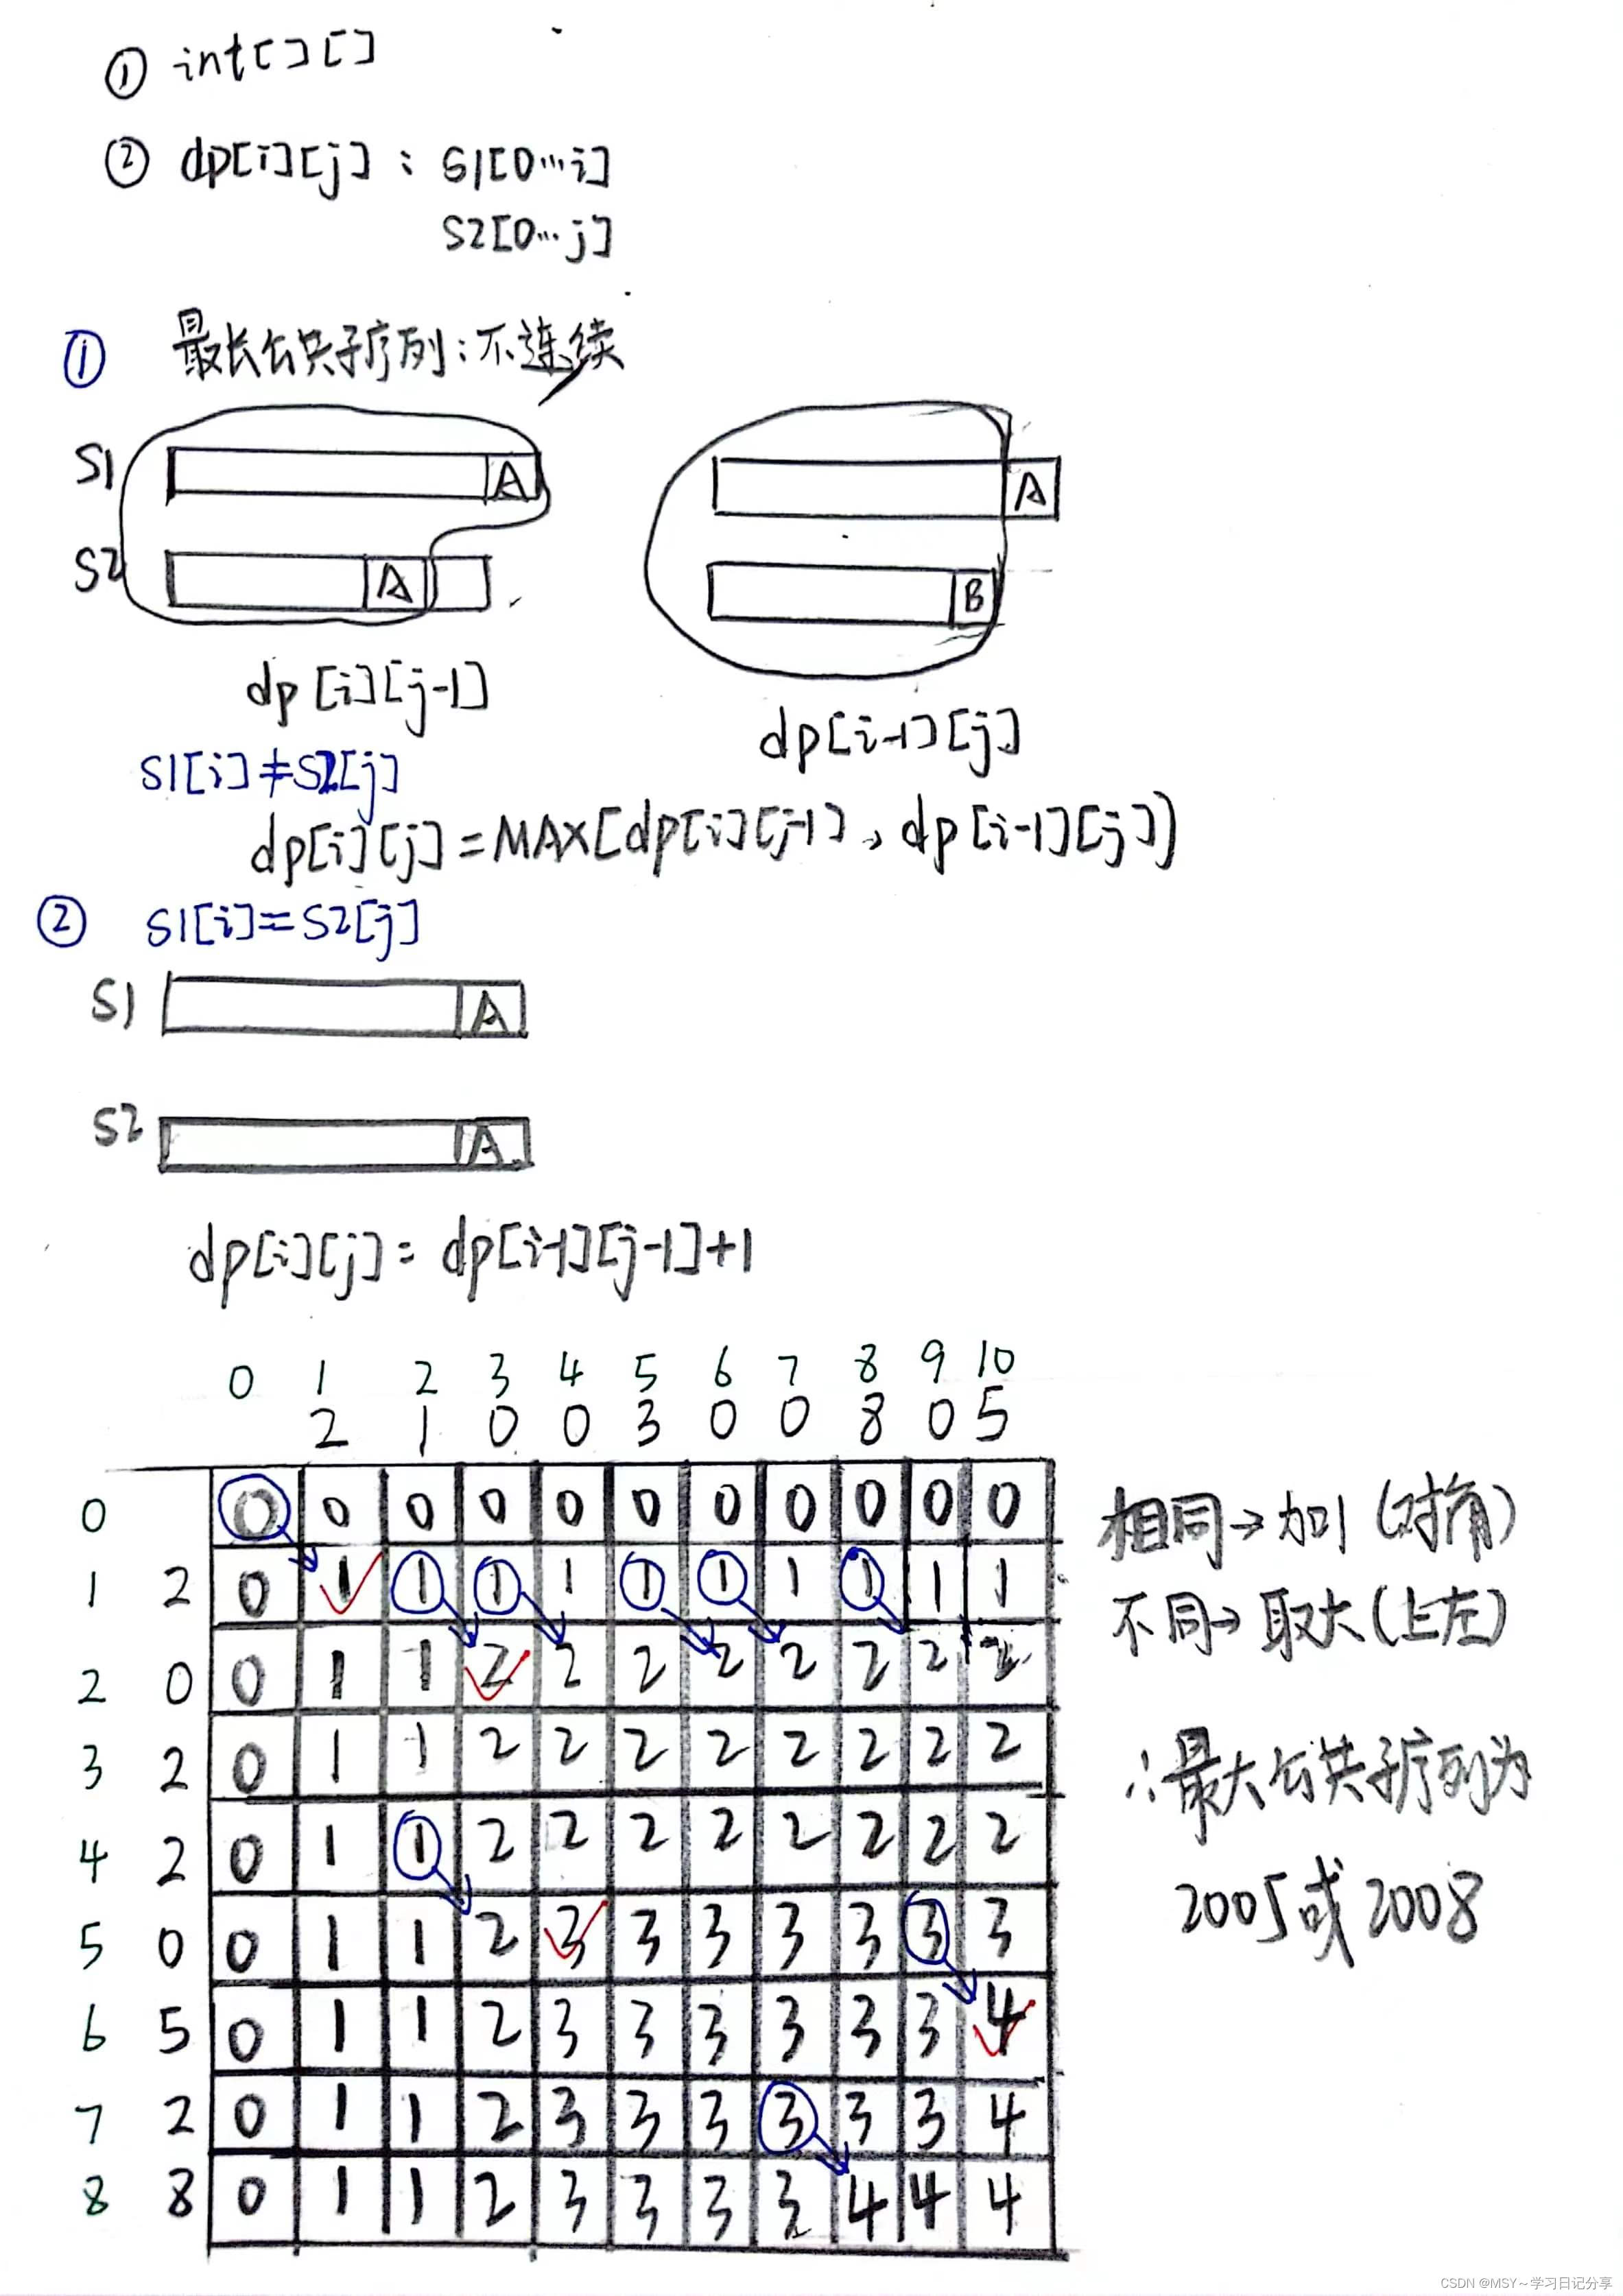 ① int[][]
② dp[i][j]: S1[0…i]
S2[0…j]
① 最长公共子序列:不连续
S1 A A
S2 A B
dp[i][j-1]
dp[i-1][j]
S1[i]≠S2[j]
dp[i][j]=MAX[dp[i][j-1], dp[i-1][j]]
② S1[i]=S2[j]
S1 A
S2 A
dp[i][j]=dp[i-1][j-1]+1
0 1 2 3 4 5 6 7 8 9 10
2 1 0 0 3 0 0 8 0 5
0 0 0 0 0 0 0 0 0 0 0 0
1 2 0 1 1 1 1 1 1 1 1 1 1
2 0 0 1 1 2 2 2 2 2 2 2 2
3 2 0 1 1 2 2 2 2 2 2 2 2
4 2 0 1 1 2 2 2 2 2 2 2 2
5 0 0 1 1 2 3 3 3 3 3 3 3
6 5 0 1 1 2 3 3 3 3 3 3 4
7 2 0 1 1 2 3 3 3 3 3 3 4
8 8 0 1 1 2 3 3 3 3 4 4 4
相同→加1(对角)
不同→取大(上左)
∴最大公共子序列为
2005或2008
CSDN @MSY~学习日记分享